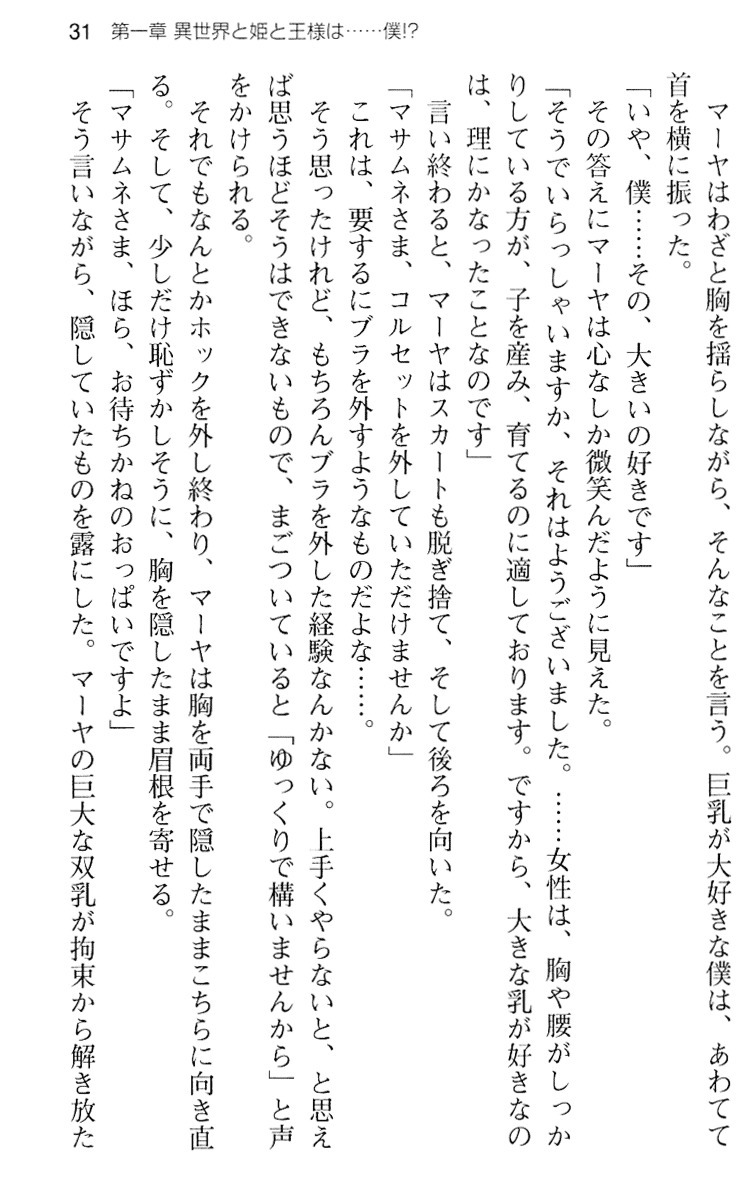 31　第一章 異世界と姫と王様は……僕!?
　マーヤはわざと胸を揺らしながら、そんなことを言う。巨乳が大好きな僕は、あわてて
首を横に振った。
「いや、僕……その、大きいの好きです」
　その答えにマーヤは心なしか微笑んだように見えた。
「そうでいらっしゃいますか、それはようございました。……女性は、胸や腰がしっか
りしている方が、子を産み、育てるのに適しております。ですから、大きな乳が好きなの
は、理にかなったことなのです」
　言い終わると、マーヤはスカートも脱ぎ捨て、そして後ろを向いた。
「マサムネさま、コルセットを外していただけませんか」
　これは、要するにブラを外すようなものだよな……。
　そう思ったけれど、もちろんブラを外した経験なんかない。上手くやらないと、と思え
ば思うほどそうはできないもので、まごついていると「ゆっくりで構いませんから」と声
をかけられる。
　それでもなんとかホックを外し終わり、マーヤは胸を両手で隠したままこちらに向き直
る。そして、少しだけ恥ずかしそうに、胸を隠したまま眉根を寄せる。
「マサムネさま、ほら、お待ちかねのおっぱいですよ」
　そう言いながら、隠していたものを露にした。マーヤの巨大な双乳が拘束から解き放た